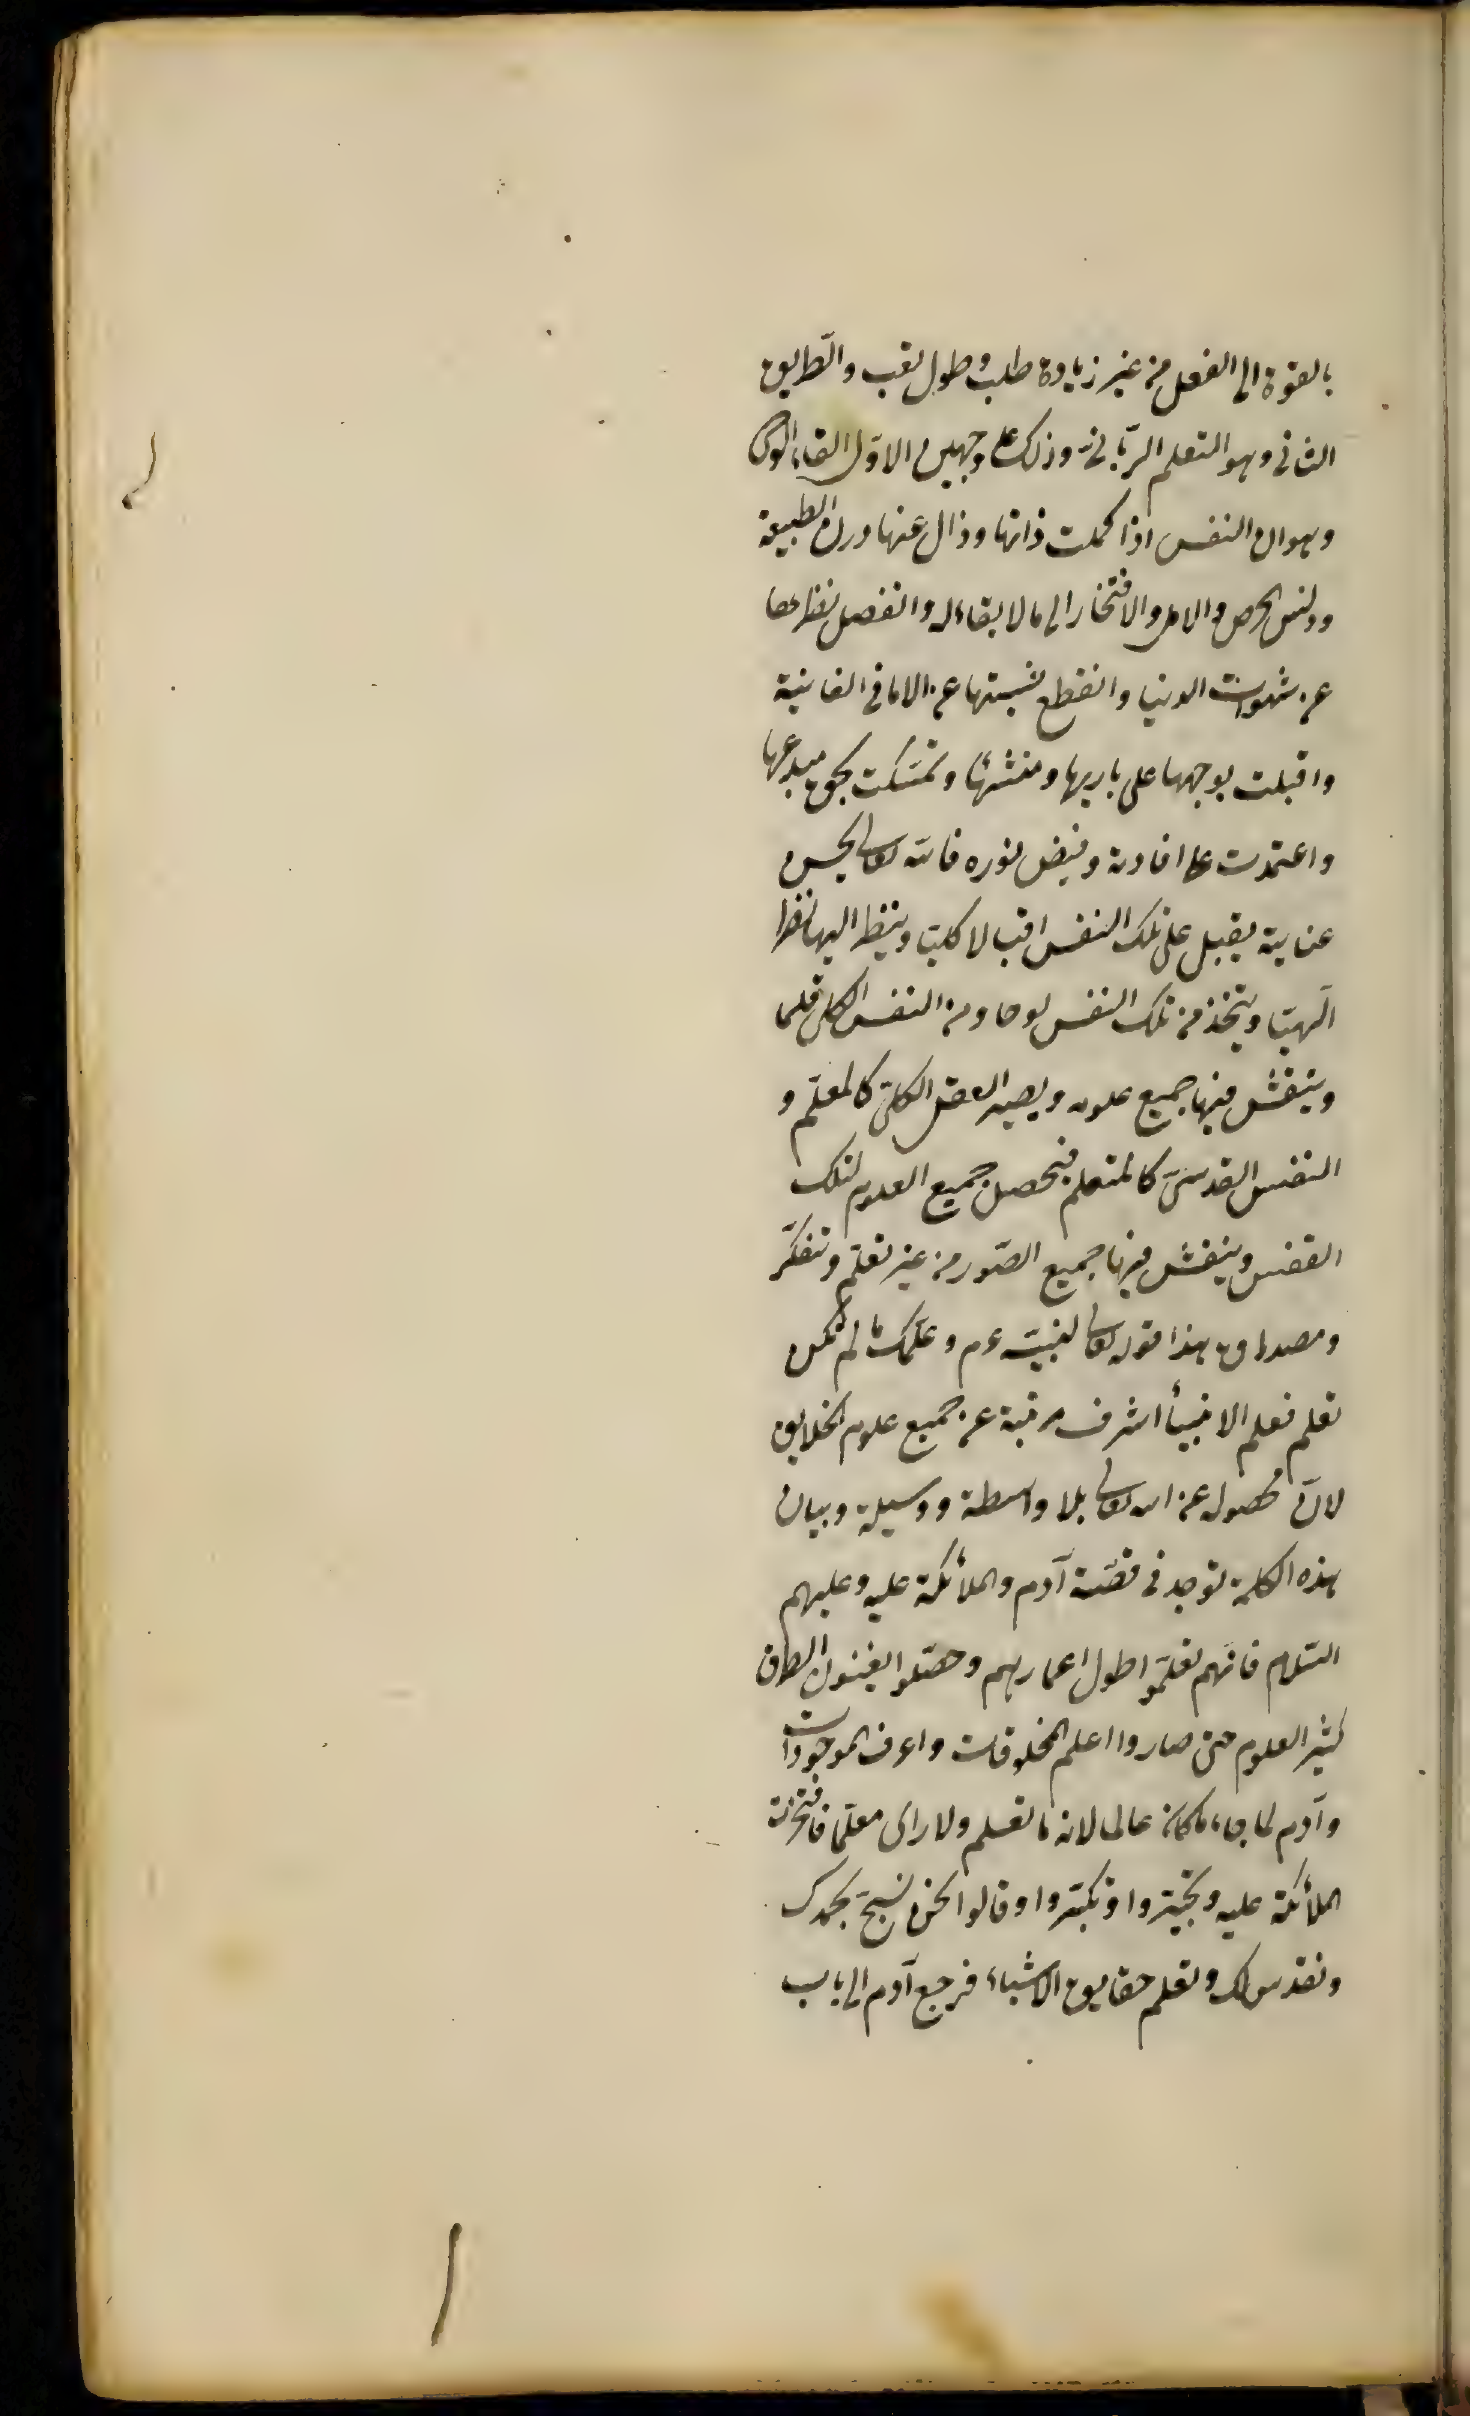 بالقوة الى الفعل من غير زيادة طلب وطول تعب والطريق
الثانى وهو التعلم الربانى وذلك على وجهين الاول القاء الوحى
وهو ان النفس اذا كملت ذاتها وزال عنها درن الطبيعة
ودنس الحرص والامل والافتخار الى ما لا بقاء له وانفصل نظرها
عن شهوات الدنيا وانقطع نسبتها عن الامانى الفانية
واقبلت بوجهها على باريها ومنشئها وتمسكت بحق مبدعها
واعتمدت على افادته وفيض نوره فالله تعالى بحسن
عناية يقبل على تلك النفس اقبالا كليا وينظر اليها نظرا
الهيا ويتخذ من تلك النفس لوحا ومن النفس الكلى قلما
وينقش فيها جميع علومه ويصير العقل الكلى كالمعلم و
النفس القدسى كالمتعلم فيحصل جميع العلوم لتلك
النفس وينقش فيها جميع الصور من غير تعلم وتفكر
ومصداق هذا قوله تعالى لنبيه ءم وعلمك ما لم تكن
تعلم فعلم الانبيأ اشرف مرتبة عن جميع علوم الخلايق
لان محصوله عن الله تعالى بلا واسطة ووسيلة وبيان
هذه الكلمة توجد فى قصة آدم والملأئكة عليه وعليهم
السلام فانهم تعلموا طول اعمارهم وحصلوا بفنون الطرق
كثير العلوم حتى صاروا اعلم المخلوقات واعرف الموجودات
وآدم لما جاء ما كان عالما لانه ما تعلم ولا راى معلما فافتخرت
الملأئكة عليه وتجبروا وتكبروا وقالوا نحن نسبح بحمدك
ونقدس لك ونعلم حقايق الاشياء فرجع آدم الى باب